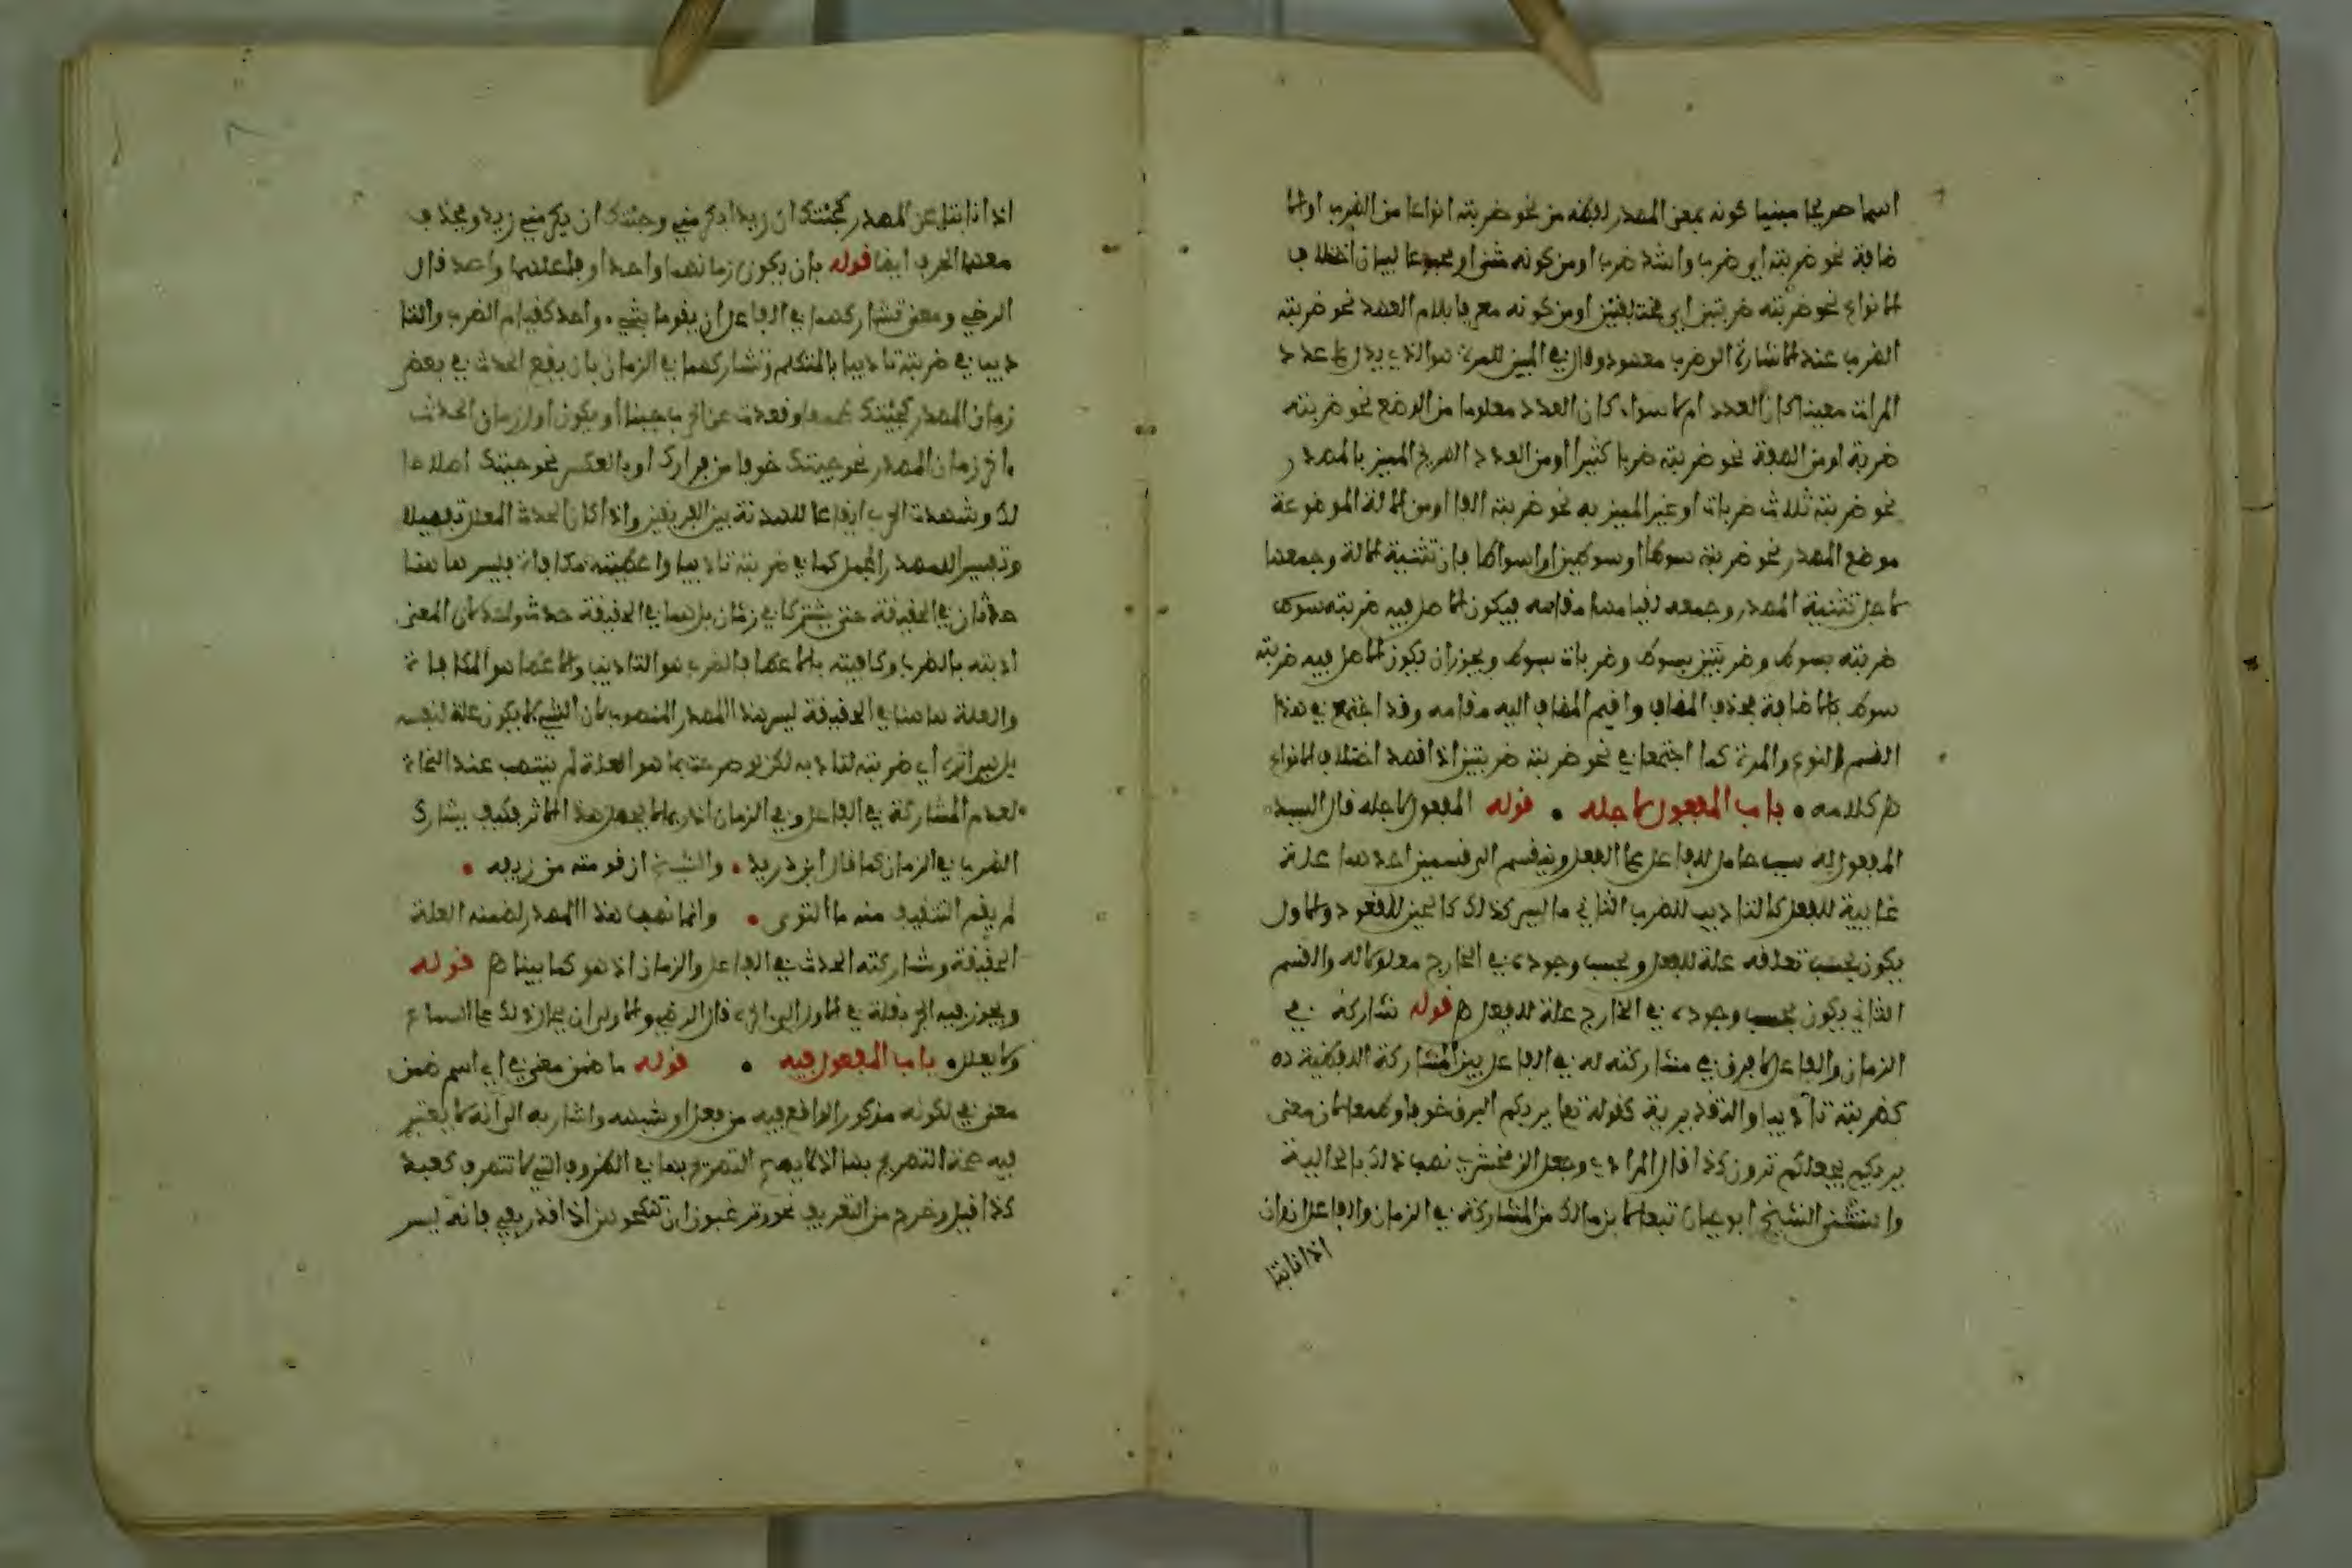 اسما صريحا مبنيا كونه بمعنى المصدر لفظه من نحو ضربته انواعا من الضرب او الا
ضافة نحو ضربته اي ضرب واشد ضرب او من كونه مثنى او مجموعا لبيان اختلاف
الانواع نحو ضربته ضربتين اي مختلفتين او من كونه معرفا بلام العهد نحو ضربته
الضرب عند الاشارة الى ضرب معهود وقال في المبين للمرة هو الذي يدل على عدد
المرات معينا كان العدد ام لا سواء كان العدد معلوما من الوضع نحو ضربته
ضربة او من الصفة نحو ضربته ضربا كثيرا او من العدد الصريح المميز بالمصدر
نحو ضربته ثلاث ضربات او غير المميز به نحو ضربته الفا او من الالة الموضوعة
موضع المصدر نحو ضربته سوطا او سوطين او اسواطا فان تثنية الالة وجمعها
لاجل تثنية المصدر وجمعه لقيامها مقامه فيكون الاصل فيه ضربته سوط
ضربته بسوط وضربتين بسوط وضربات بسوط ويجوز ان يكون الاصل فيه ضربة
سوط بالاضافة بحذف المضاف واقيم المضاف اليه مقامه وقد اجتمع في هذا
القسم النوع والمرة كما اجتمعا في نحو ضربته ضربتين اذا قصد اختلاف الانواع
كلامه • باب المفعول لاجله • قوله المفعول لاجله قال السيد
المفعول له سبب حامل للفاعل على الفعل وينقسم الى قسمين احدهما علة
غايية للفعل كالتاديب للضرب الثاني ما ليس كذلك كالجبن للقعود والاول
يكون بحسب تعلقه علة للفعل وبحسب وجوده في الخارج معلولا له والقسم
الثاني يكون بحسب وجوده في الخارج علة للفعل قوله تشاركه في
الزمان والفاعل لا فرق في مشاركته له في الفاعل بين المشاركة اللفظية
كضربته تأديبا والتقديرية كقوله تعا يريكم البرق خوفا وطمعا لان معنى
يريكم يجعلكم ترون كذا قال المرادي وجعل الزمخشري نصب ذلك بالحالية
واستثنى الشيخ ابو حيان تبعا لابن مالك من المشاركة في الزمان والفاعل ان وان
اذا نابتا
اذا نابتا عن المصدر كجئتك ان زيدا يكرمني وجئتك ان يكرمني زيد ويحذف
معهما الحرف ايضا قوله بان يكون زمانهما واحدا وفاعلهما واحد قال
الرضي ومعنى تشاركهما في الفاعل ان يقوما بشيء واحد كقيام الضرب والتا
ديب في ضربته تاديبا بالمتكلم وتشاركهما في الزمان بان يقع الحدث في بعض
زمان المصدر كجئتك طمعا وقعدت عن الحرب جبنا او يكون اول زمان الحدث
اخر زمان المصدر نحو جئتك خوفا من فرارك او بالعكس نحو جئتك اصلاحا
لك وشهدت الحرب ايقاعا للهدنة بين الفريقين واذا كان الحدث المعلل تفصيلا
وتفسيرا للمصدر المجمل كما في ضربته تاديبا واعطيته مكافاة فليس هاهنا
حدثان في الحقيقة حتى يشتركا في زمان بل هما في الحقيقة حدث واحد لان المعنى
ادبته بالضرب وكافيته بالاعطا فالضرب هو التاديب والاعطا هو المكافاة
والعلة هاهنا في الحقيقة ليس هذا المصدر المنصوب لان الشيء لا يكون علة لنفسه
بل هي اثره اي ضربته لتادبه لكن لو صرحت بما هو العلة لم ينتصب عند النحاة
لعدم المشاركة في الفاعل وفي الزمان اذ ربما لا يحصل هذا الاثر فكيف يشارك
الضرب في الزمان كما قال ابن دريد • والشيخ ان قومته من زيغه •
لم يقم التثقيف منه ما التوى • وانما نصب هذا المصدر لضمنه العلة
الحقيقة ومشاركته الحدث في الفاعل والزمان اذ هو كما بينا قوله
ويجوز فيه الجر بقلة في الاول الى اخره قال الرضي والاولى ان يحال ذلك على السماع
ولا يعلل • باب المفعول فيه • قوله ما ضمن معنى في اي اسم ضمن
معنى في لكونه مذكورا لواقع فيه من فعل او شبهه واشار به الى انه لا يعتبر
فيه صحة التصريح بها اذ لا يصح التصريح بها في الظروف التي لا تتصرف كعند
كذا قيل وخرج من التعريف نحو وترغبون ان تنكحوهن اذا قدر بفي فانه ليس